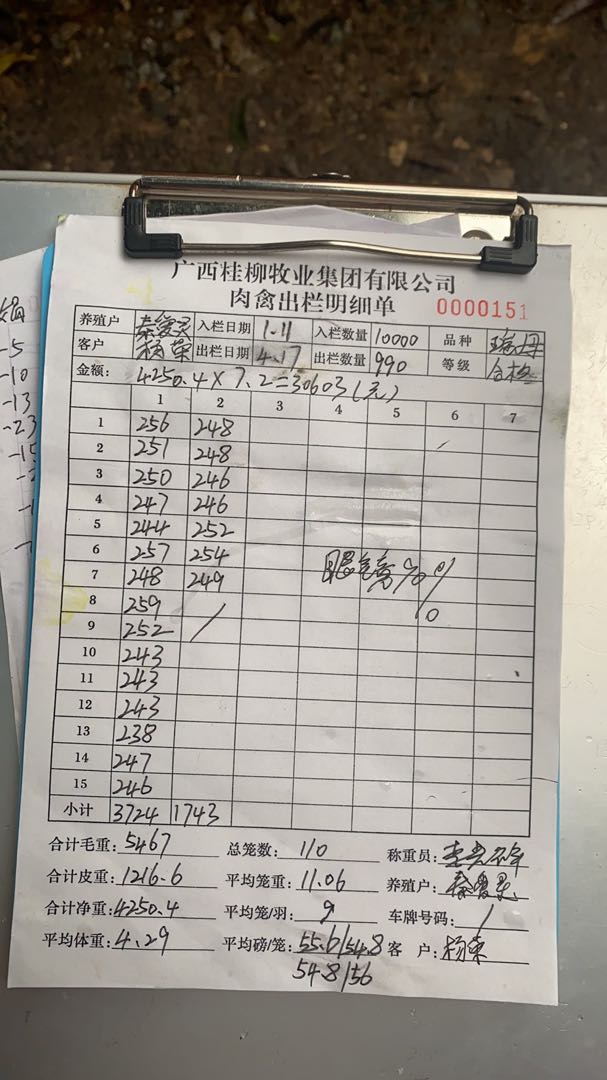 广西桂柳牧业集团有限公司
肉禽出栏明细单 0000151
养殖户 入栏日期 1.11 入栏数量 10000 品种 瑞母
客户 杨荣 出栏日期 4.17 出栏数量 990 等级 合格
金额: 4250.4×7.2=30603(元)
1 2 3 4 5 6 7
1 256 248
2 251 248
3 250 246
4 247 246
5 244 252
6 257 254
7 248 249
8 259
9 252 /
10 243
11 243
12 243
13 238
14 247
15 246
小计 3724 1743
合计毛重: 5467 总笼数: 110 称重员:
合计皮重: 1216.6 平均笼重: 11.06 养殖户:
合计净重: 4250.4 平均笼/羽: 9 车牌号码: /
平均体重: 4.29 平均磅/笼: 55.6/54.8 客 户: 杨荣
54.8/56
-5
-10
-13
-23